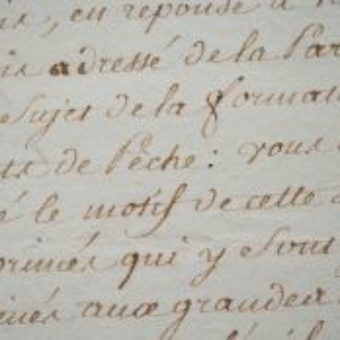 en reponse a
adressé de la Par
Sujet de la format
de Pêche : vous
é le motif de cette
primés qui y Sont
inés aux grandes